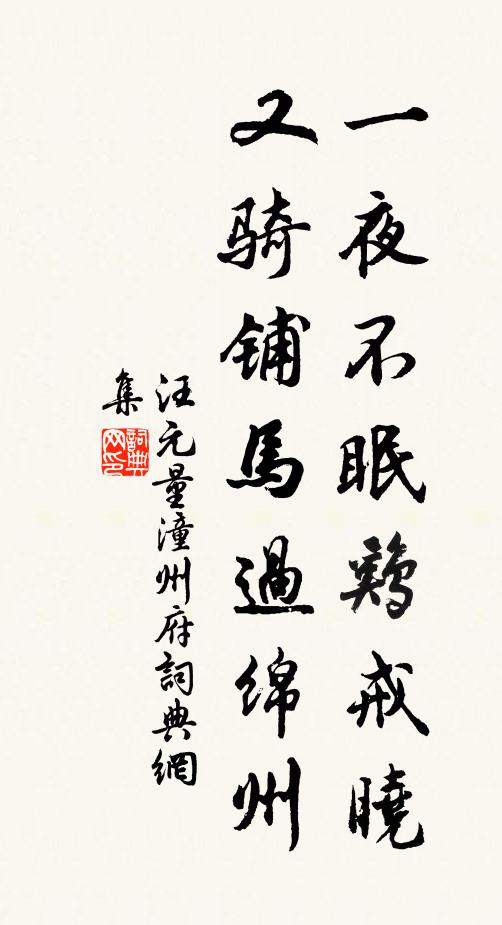 一夜不眠鷄戒曉
又骑铺馬過绵州
汪元量潼州府詞典網
集
詞典网印